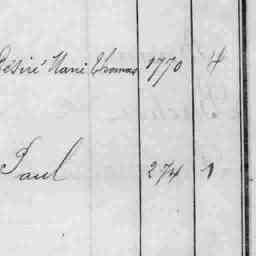 Désiré Marie Thomas 1770 4
Paul 274 1